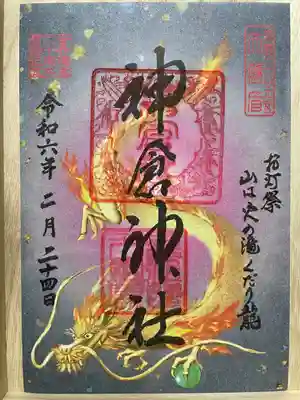 お灯祭
山は火の滝くだり龍
神倉神社
令和六年二月二十四日